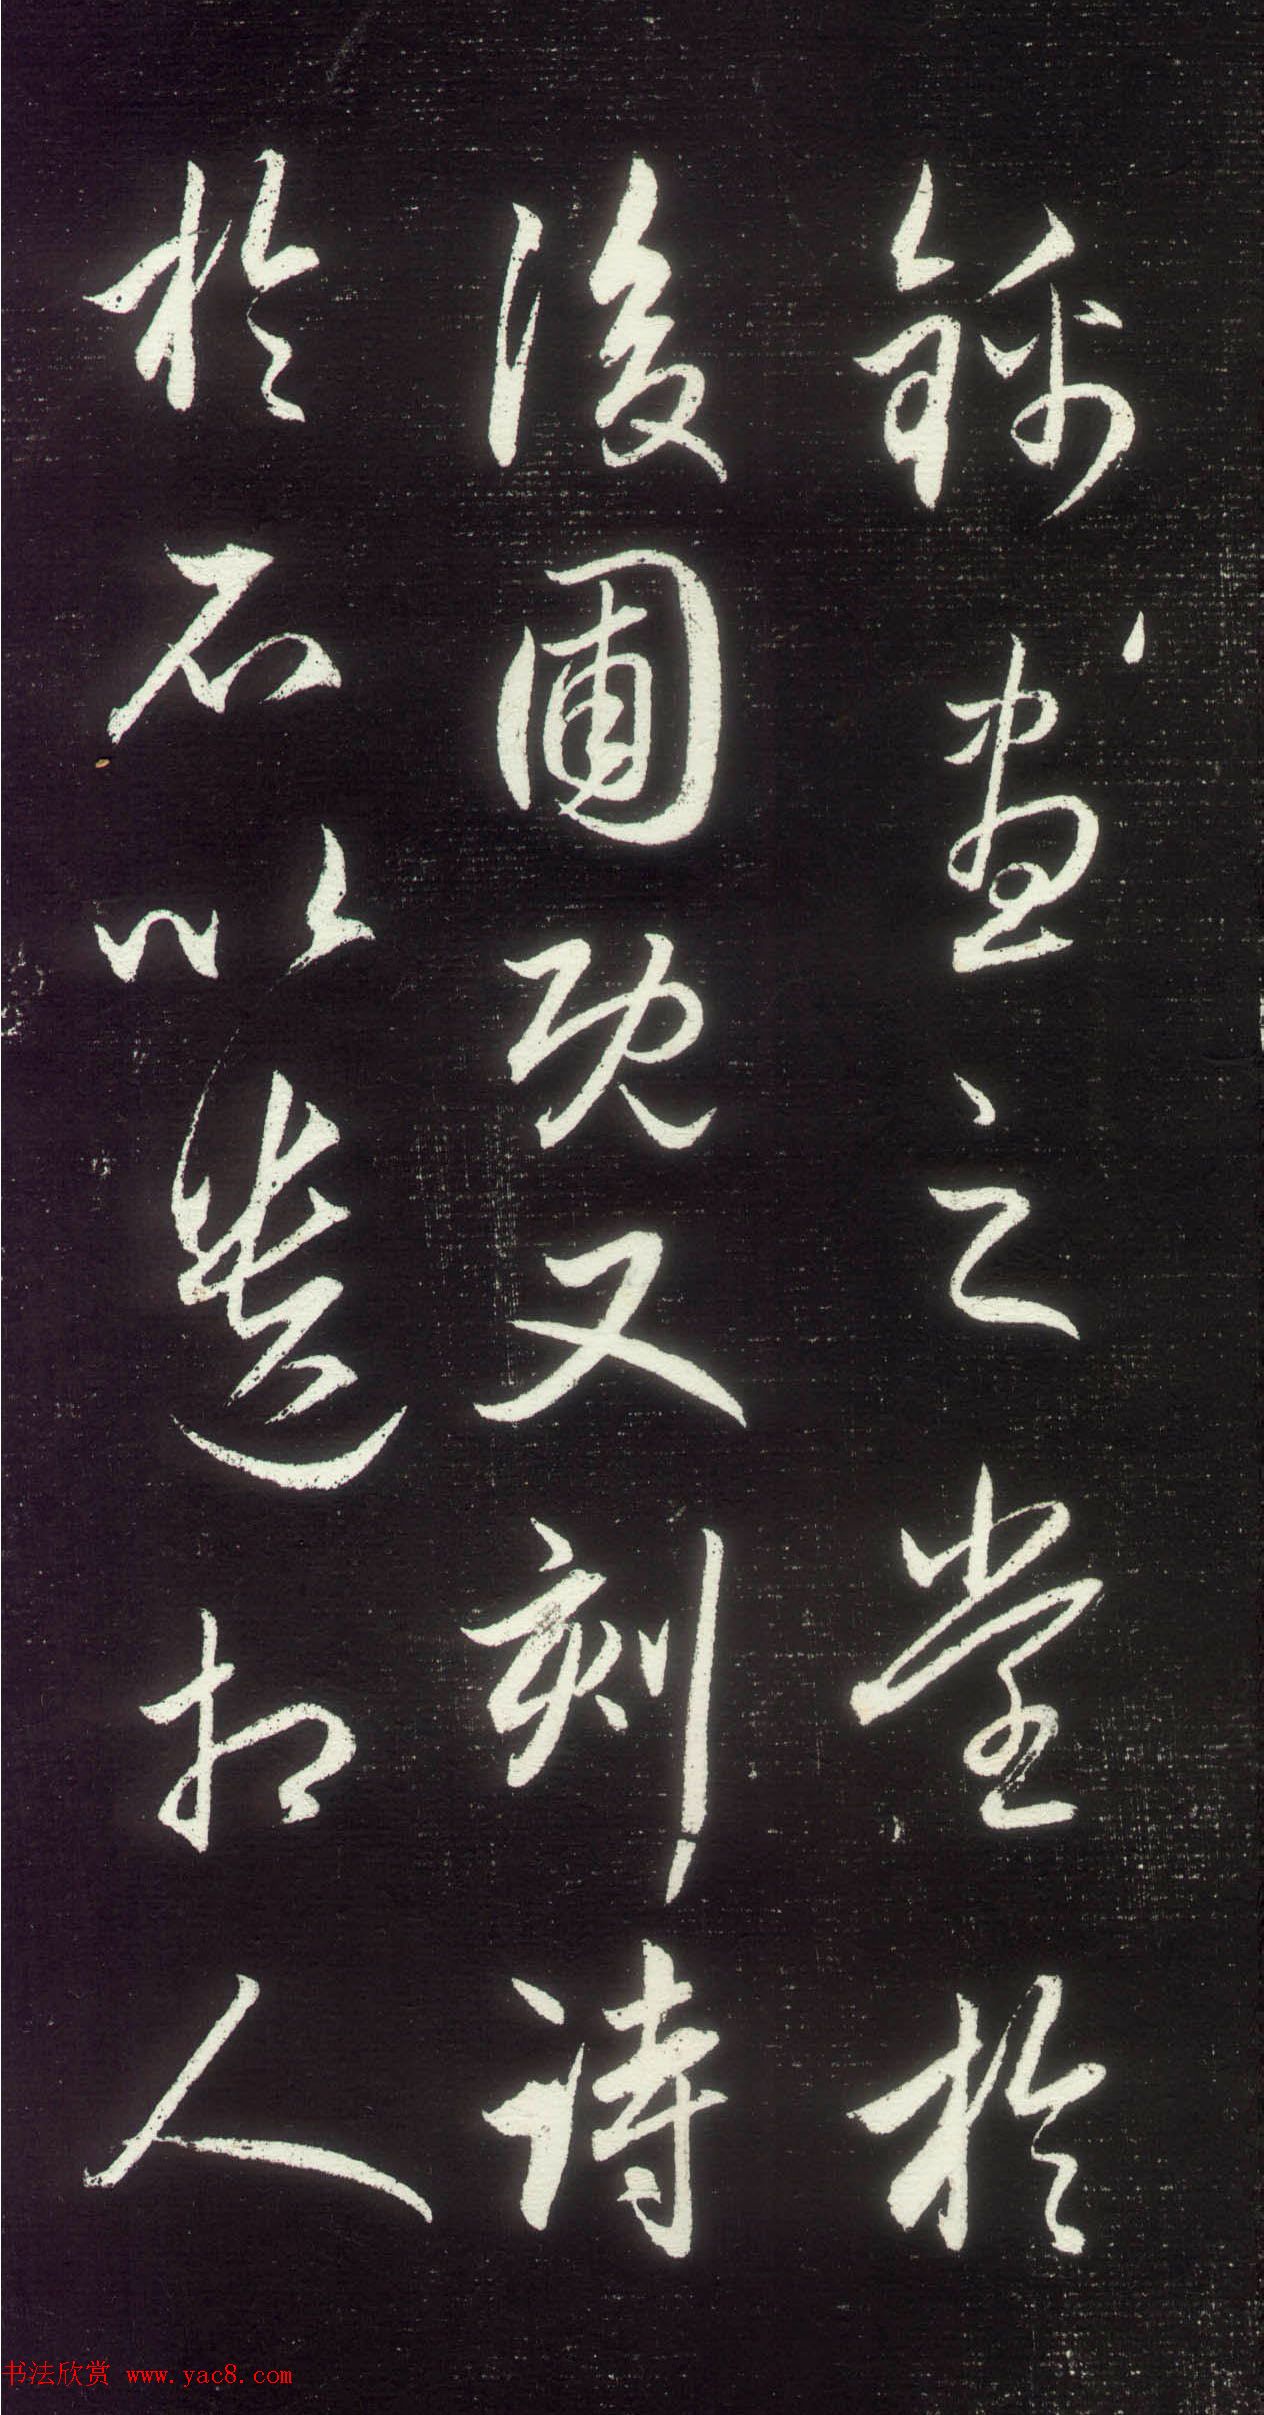 錦晝之堂於
後圃既又刻詩
於石以遺相人
书法欣赏 www.yac8.com